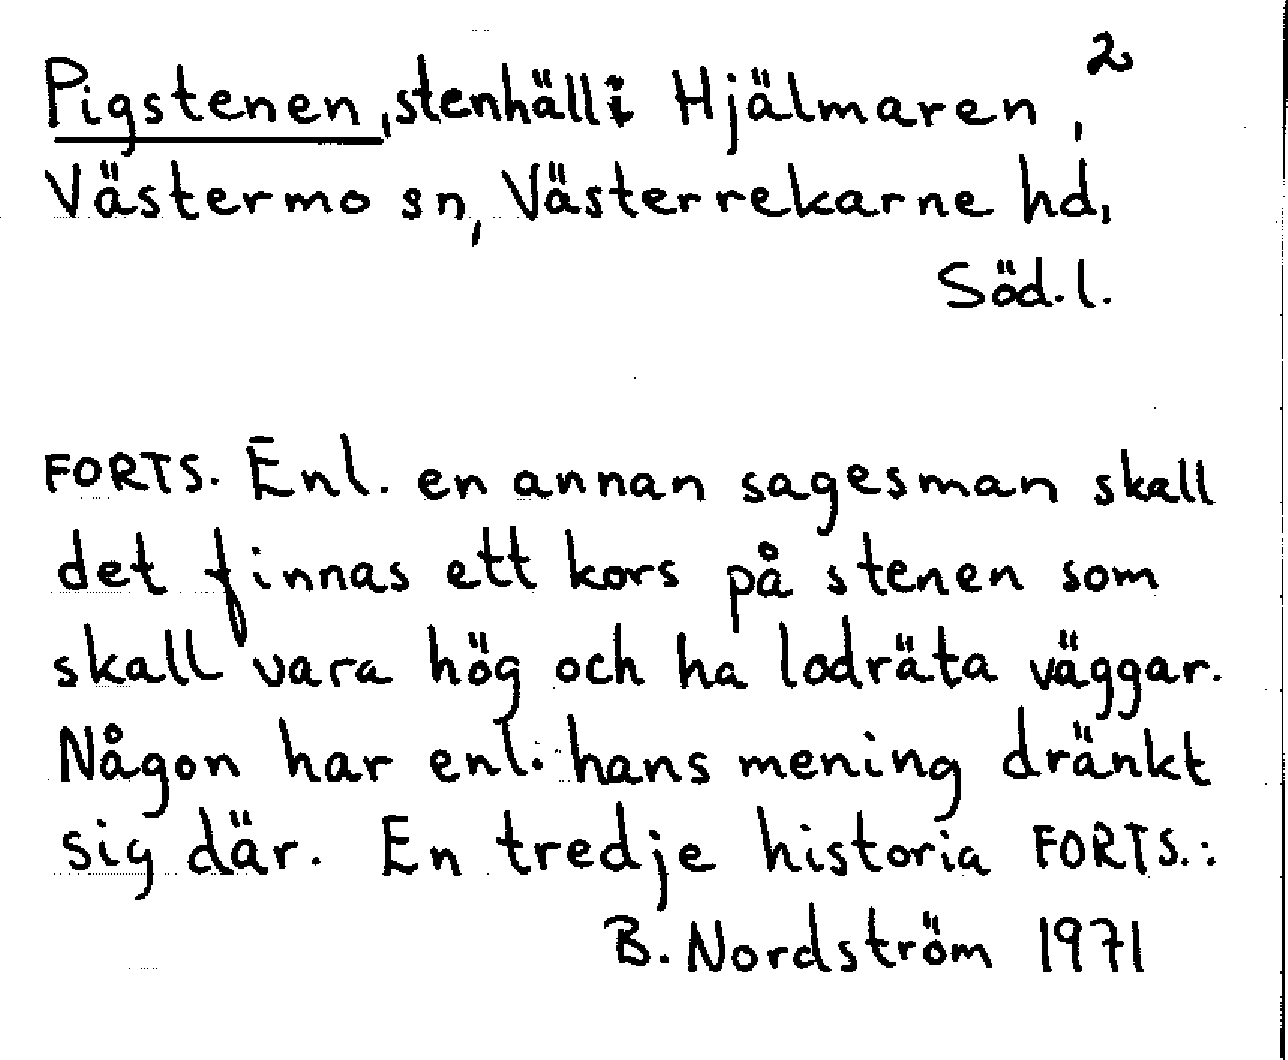 2
Pigstenen, stenhäll i Hjälmaren,
Västermo sn, Västerrekarne hd,
Söd. l.
FORTS. Enl. en annan sagesman skall
det finnas ett kors på stenen som
skall vara hög och ha lodräta väggar.
Någon har enl. hans mening dränkt
sig där. En tredje historia FORTS.:
B. Nordström 1971